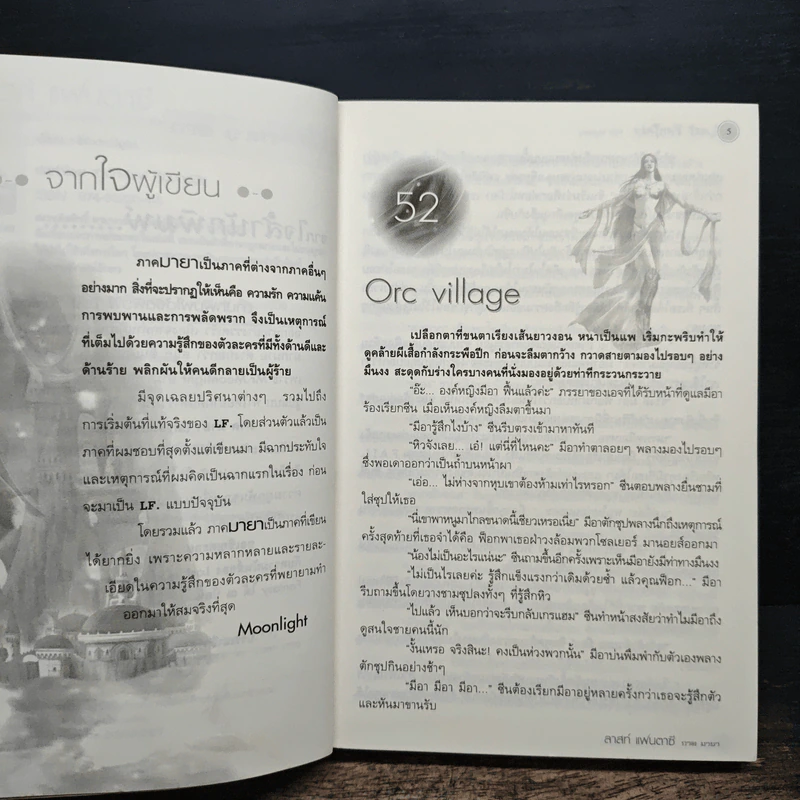 จากใจผู้เขียน
ภาคมายาเป็นภาคที่ต่างจากภาคอื่นๆ
อย่างมาก สิ่งที่จะปรากฏให้เห็นคือ ความรัก ความแค้น
การพบพานและการพลัดพราก จึงเป็นเหตุการณ์
ที่เต็มไปด้วยความรู้สึกของตัวละครที่มีทั้งด้านดีและ
ด้านร้าย พลิกผันให้คนดีกลายเป็นผู้ร้าย
มีจุดเฉลยปริศนาต่างๆ รวมไปถึง
การเริ่มต้นที่แท้จริงของ LF. โดยส่วนตัวแล้วเป็น
ภาคที่ผมชอบที่สุดตั้งแต่เขียนมา มีฉากประทับใจ
และเหตุการณ์ที่ผมคิดเป็นฉากแรกในเรื่อง ก่อน
จะมาเป็น LF. แบบปัจจุบัน
โดยรวมแล้ว ภาคมายาเป็นภาคที่เขียน
ได้ยากยิ่ง เพราะความหลากหลายและรายละ-
เอียดในความรู้สึกของตัวละครที่พยายามทำ
ออกมาให้สมจริงที่สุด
Moonlight
5
52
Orc village
เปลือกตาที่ขนตาเรียงเส้นยาวงอน หนาเป็นแพ เริ่มกะพริบทำให้
ดูคล้ายผีเสื้อกำลังกระพือปีก ก่อนจะลืมตากว้าง กวาดสายตามองไปรอบๆ อย่าง
มึนงง สะดุดกับร่างใครบางคนที่นั่งมองอยู่ด้วยท่าทีกระวนกระวาย
"อ๊ะ... องค์หญิงมีอา ฟื้นแล้วค่ะ" ภรรยาของเอจที่ได้รับหน้าที่ดูแลมีอา
ร้องเรียกซีน เมื่อเห็นองค์หญิงลืมตาขึ้นมา
"มีอารู้สึกไงบ้าง" ซีนรีบตรงเข้ามาหาทันที
"หิวจังเลย... เอ๋! แต่นี่ที่ไหนคะ" มีอาทำตาลอยๆ พลางมองไปรอบๆ
ซึ่งพอเดาออกว่าเป็นถ้ำบนหน้าผา
"เอ่อ... ไม่ห่างจากหุบเขาต้องห้ามเท่าไรหรอก" ซีนตอบพลางยื่นชามที่
ใส่ซุปให้เธอ
"นี่เขาพาหนูมาไกลขนาดนี้เชียวเหรอเนี่ย" มีอาตักซุปพลางนึกถึงเหตุการณ์
ครั้งสุดท้ายที่เธอจำได้คือ ฟ็อกพาเธอฝ่าวงล้อมพวกโซลเยอร์ มานอยส์ออกมา
"น้องไม่เป็นอะไรแน่นะ" ซีนถามขึ้นอีกครั้งเพราะเห็นมีอายังมีท่าทางมึนงง
"ไม่เป็นไรเลยค่ะ รู้สึกแข็งแรงกว่าเดิมด้วยซ้ำ แล้วคุณฟ็อก..." มีอา
รีบถามขึ้นโดยวางชามซุปลงทั้งๆ ที่รู้สึกหิว
"ไปแล้ว เห็นบอกว่าจะรีบกลับเกรแฮม" ซีนทำหน้าสงสัยว่าทำไมมีอาถึง
ดูสนใจชายคนนี้นัก
"งั้นเหรอ จริงสินะ! คงเป็นห่วงพวกนั้น" มีอาบ่นพึมพำกับตัวเองพลาง
ตักซุปกินอย่างช้าๆ
"มีอา มีอา มีอา..." ซีนต้องเรียกมีอาอยู่หลายครั้งกว่าเธอจะรู้สึกตัว
และหันมาขานรับ
ลาสท์ แฟนตาซี ภาค มายา